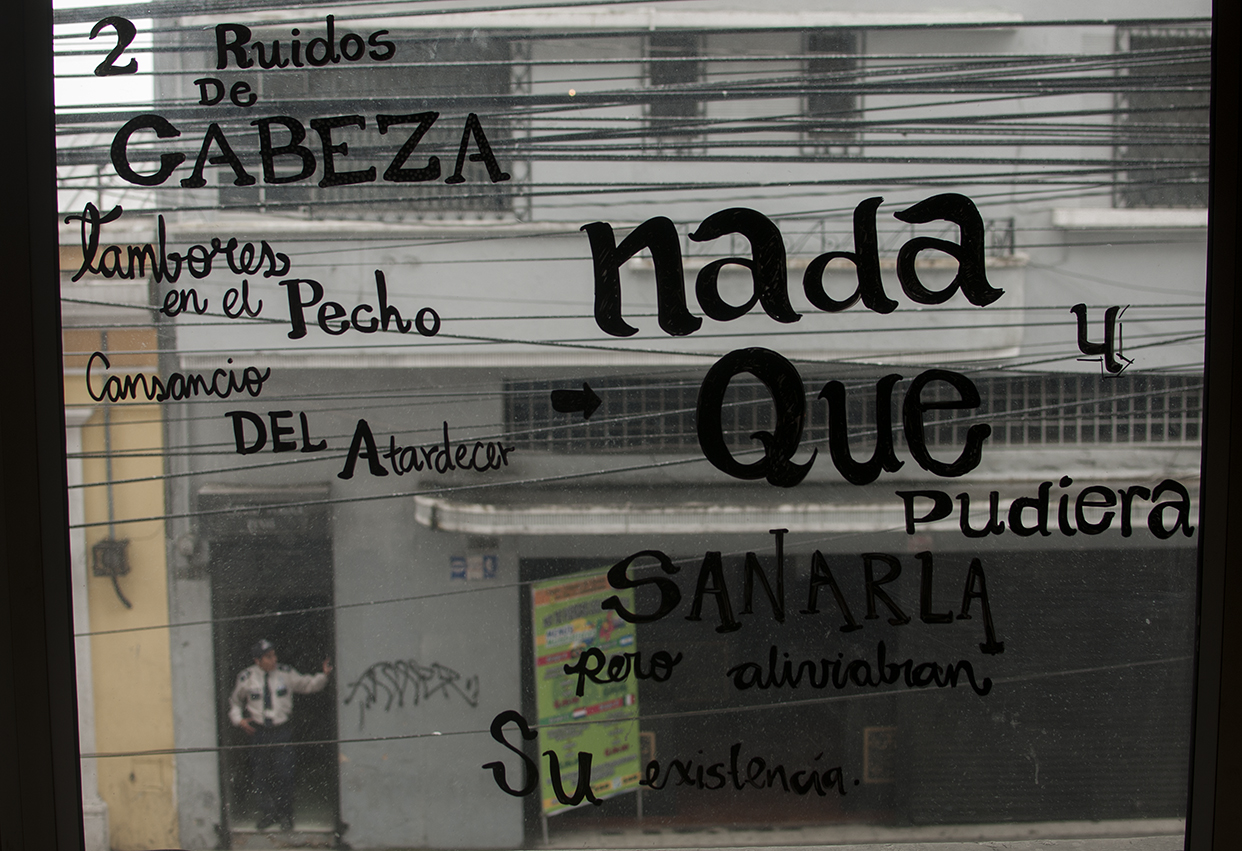 2 Ruidos
De
CABEZA
tambores
en el Pecho
Cansancio
DEL Atardecer
nada
4
Que
Pudiera
SANARLA
pero aliviabran
Su existencia.